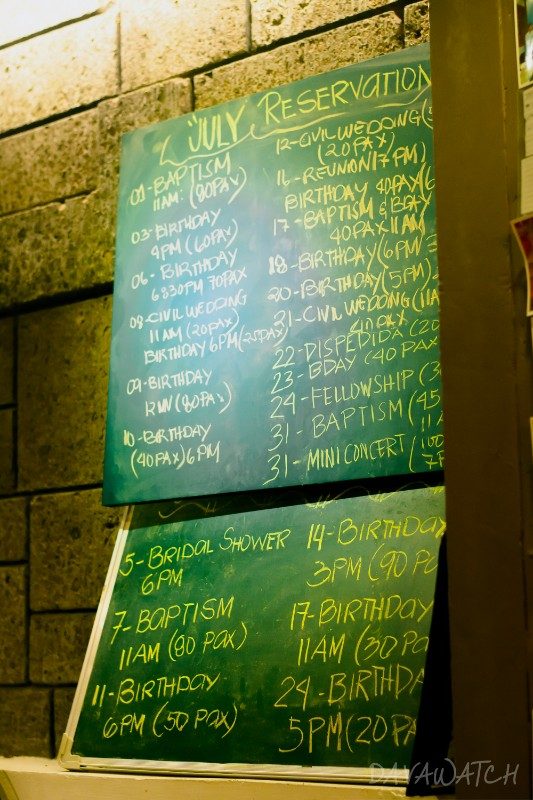 JULY RESERVATION
01-BAPTISM
11AM: (80PAX)
03-BIRTHDAY
4PM (60PAX)
06-BIRTHDAY
6:830PM 70PAX
08-CIVIL WEDDING
11AM (20PAX)
BIRTHDAY 6PM (25PAX)
09-BIRTHDAY
12NN (80PAX)
10-BIRTHDAY
(40PAX) 6PM
12-CIVIL WEDDING (
(20PAX)
16-REUNION (7PM)
BIRTHDAY 40PAX (6
17-BAPTISM & BDAY
40PAX 11AM
18-BIRTHDAY (6PM
20-BIRTHDAY (5PM)
21-CIVIL WEDDING (11A
40PAX
22-DISPEDIDA (20
23-BDAY (40 PAX
24-FELLOWSHIP (3
31-BAPTISM (45
11 A
31-MINI CONCERT (100
7P
5-BRIDAL SHOWER
6PM
7-BAPTISM
11AM (80 PAX)
11-BIRTHDAY
6PM (50 PAX)
14-BIRTHDAY
3PM (90 PA
17-BIRTHDAY
11AM (30 PA
24-BIRTHDA
5PM (20PA
DAVAWATCH